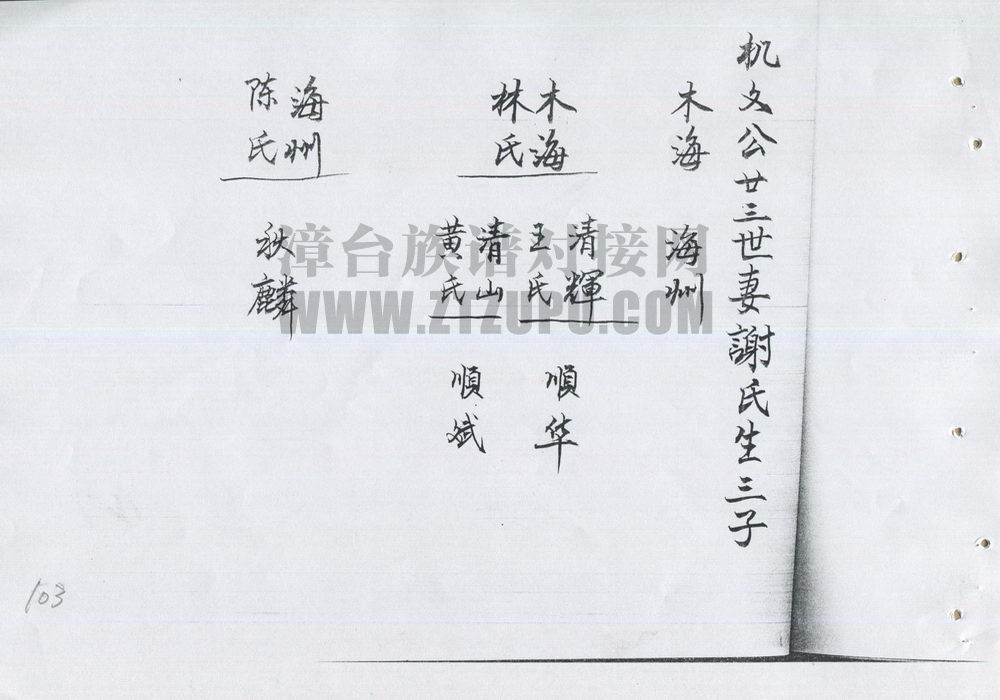 机文公廿三世妻謝氏生三子
木海 海州
木海
林氏
清輝
王氏
順华
清山
黄氏
順斌
海州
陈氏
秋麟
漳台族谱对接网
WWW.ZTZUPU.COM
103